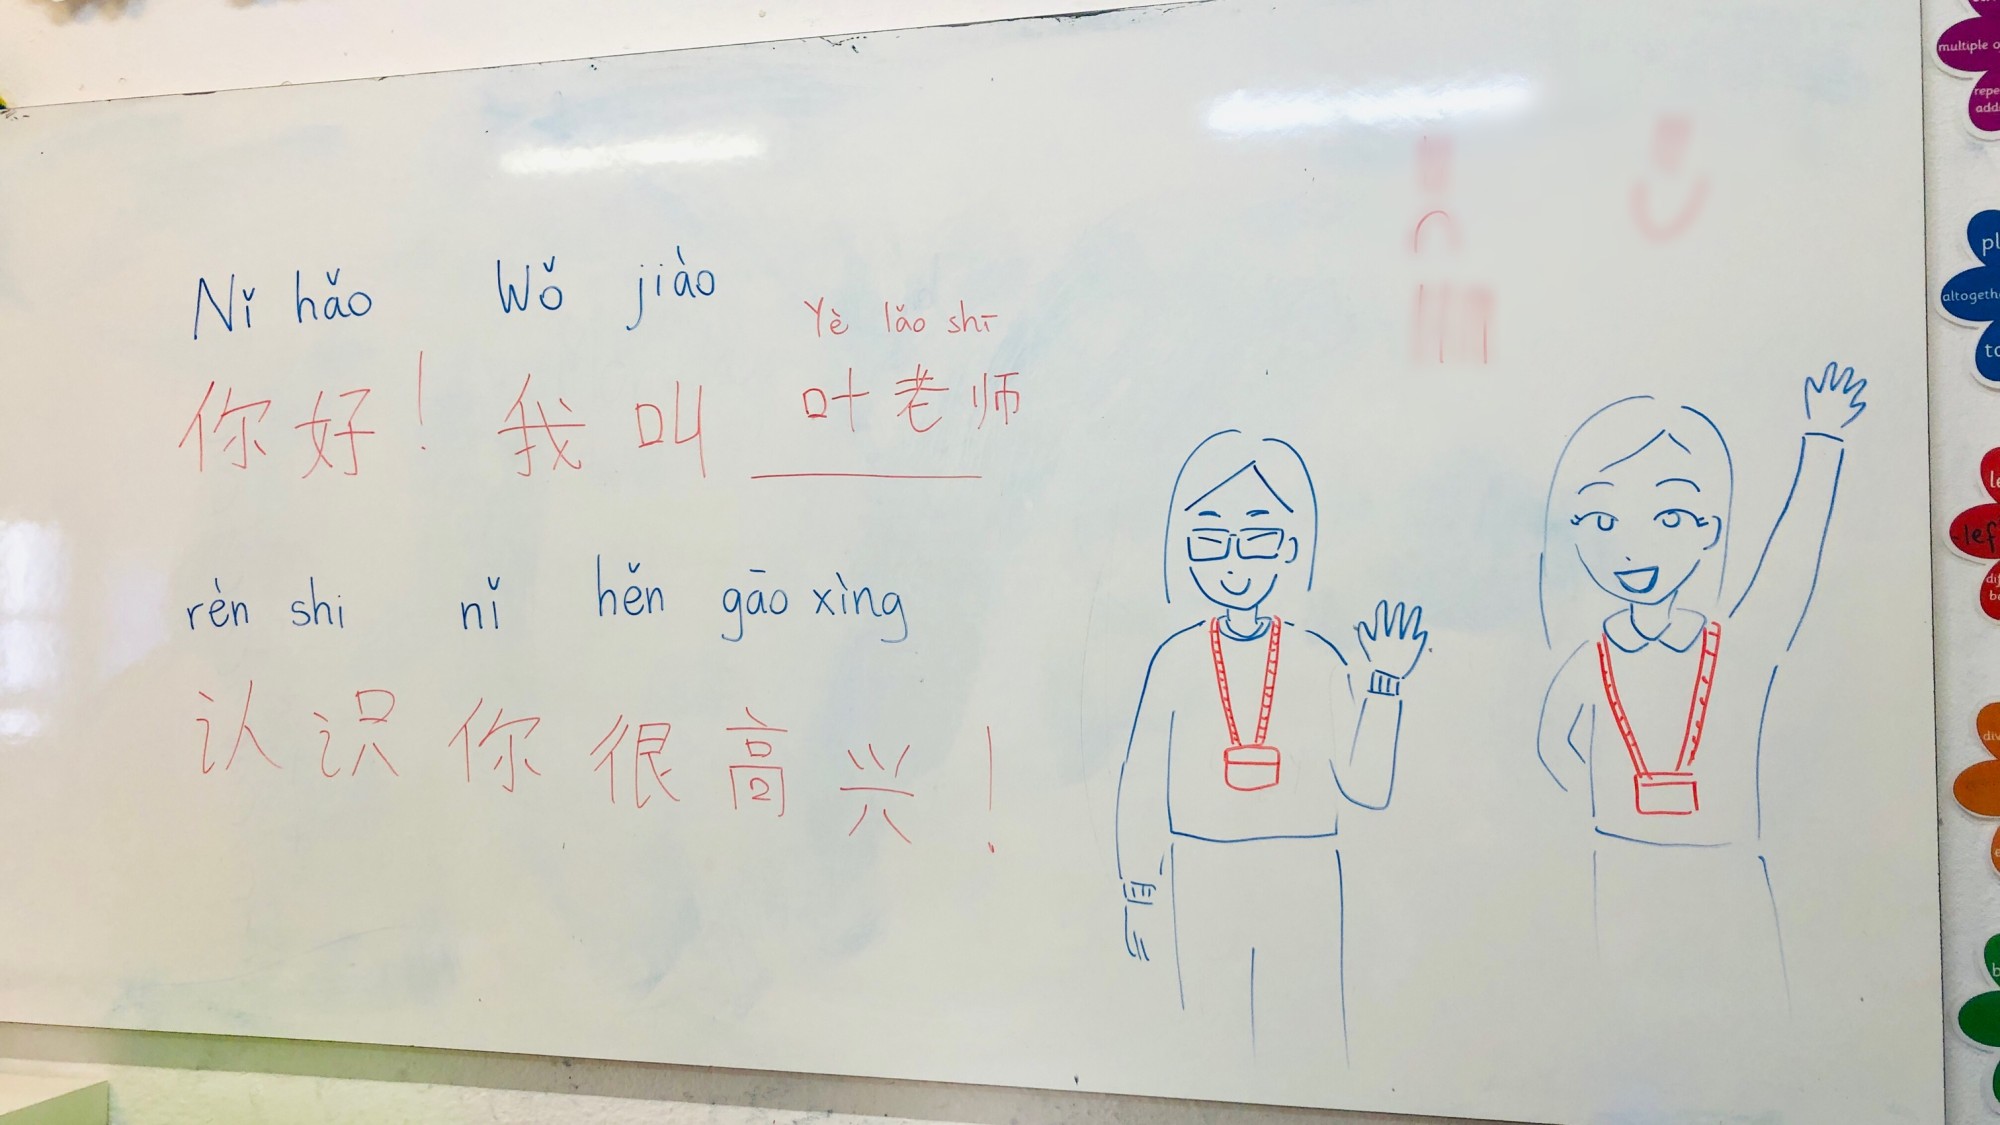 Nǐ hǎo Wǒ jiào
Yè lǎo shī
你好！ 我叫 叶老师
rèn shi nǐ hěn gāo xìng
认识你很高兴！
multiple o
repe
add
pl
altogeth
to
le
lef
di
b
div
e
b